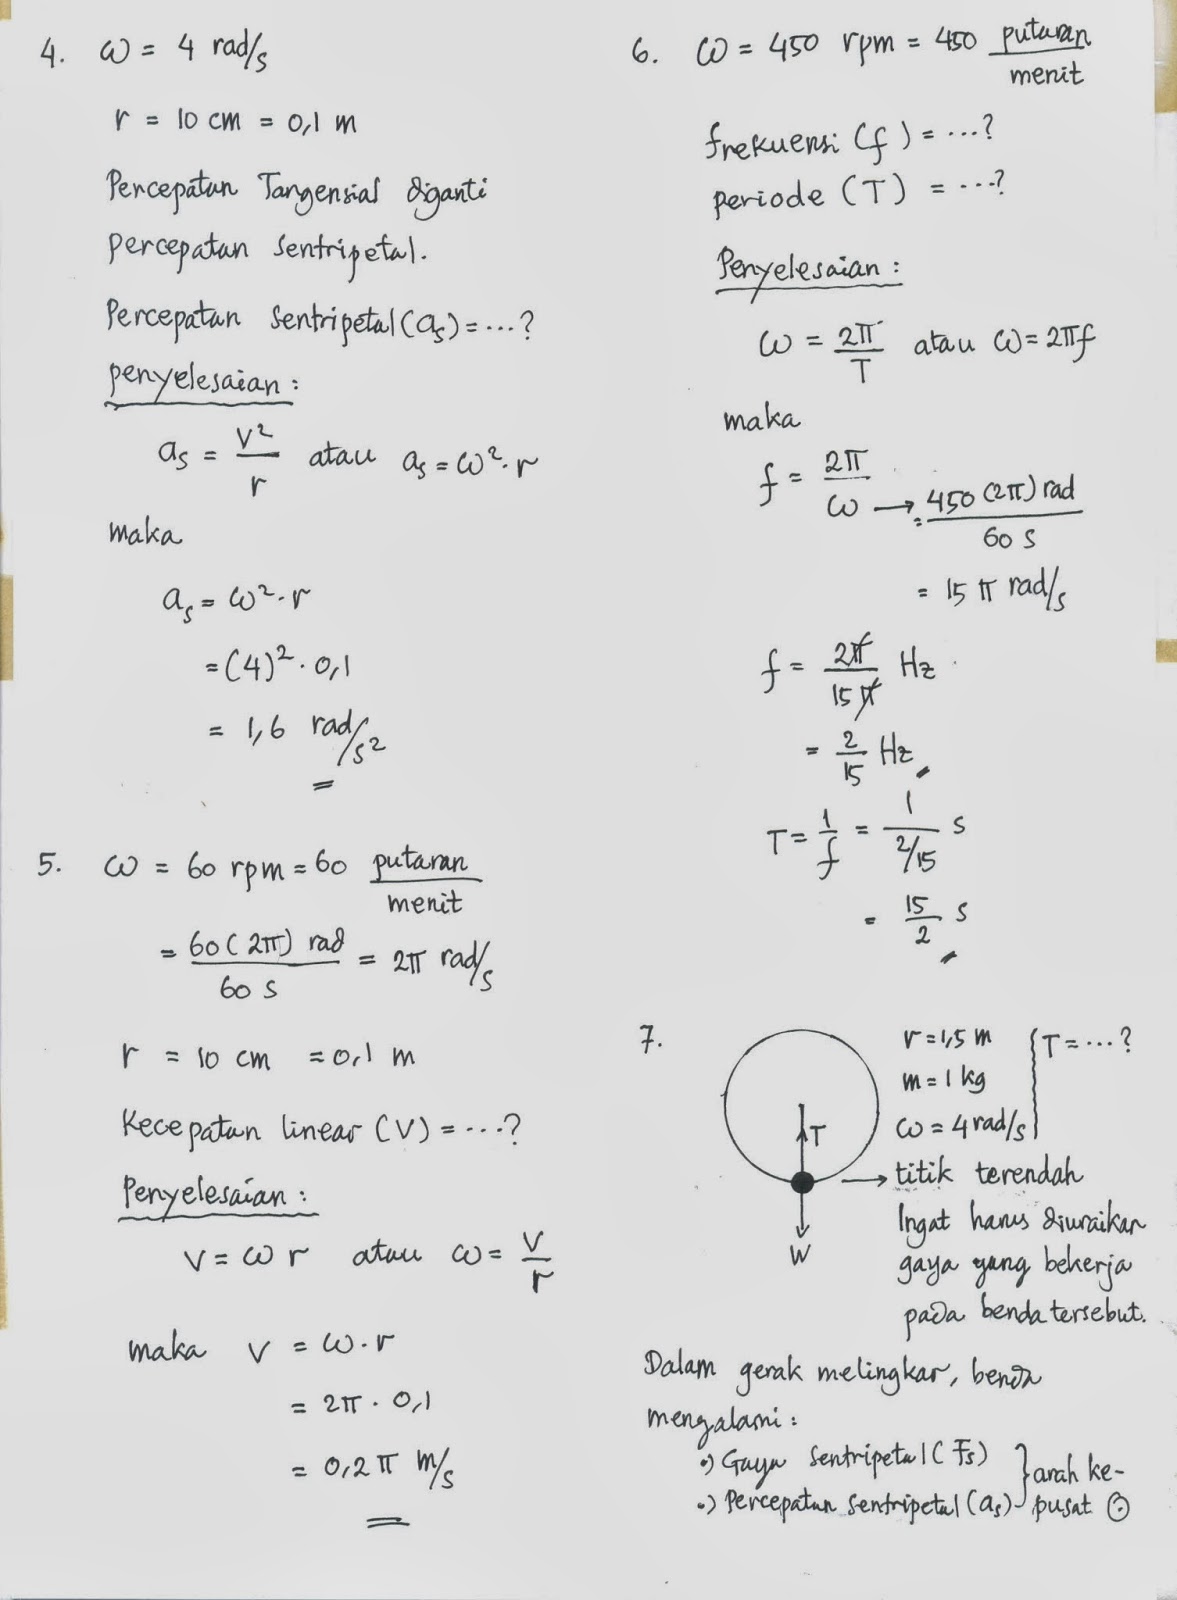 4. ω = 4 rad/s
r = 10 cm = 0,1 m
Percepatan Tangensial diganti
percepatan sentripetal.
Percepatan sentripetal (as) = ...?
penyelesaian :
as = v²/r atau as = ω² . r
maka
as = ω² . r
= (4)² . 0,1
= 1,6 rad/s²
5. ω = 60 rpm = 60 putaran/menit
= 60 (2π) rad/60 s = 2π rad/s
r = 10 cm = 0,1 m
Kecepatan linear (v) = ...?
Penyelesaian :
v = ω r atau ω = v/r
maka v = ω . r
= 2π . 0,1
= 0,2 π m/s
6. ω = 450 rpm = 450 putaran/menit
frekuensi (f) = ...?
periode (T) = ...?
Penyelesaian :
ω = 2π/T atau ω = 2πf
maka
f = 2π/ω → = 450 (2π) rad/60 s
= 15 π rad/s
f = 2π/15π Hz
= 2/15 Hz
T = 1/f = 1/(2/15) s
= 15/2 s
7. r = 1,5 m T = ...?
m = 1 kg
ω = 4 rad/s
T
W
→ titik terendah
Ingat harus diuraikan
gaya yang bekerja
pada benda tersebut.
Dalam gerak melingkar, benda
mengalami :
•) Gaya sentripetal (Fs) } arah ke-
•) Percepatan sentripetal (as) pusat ⊙